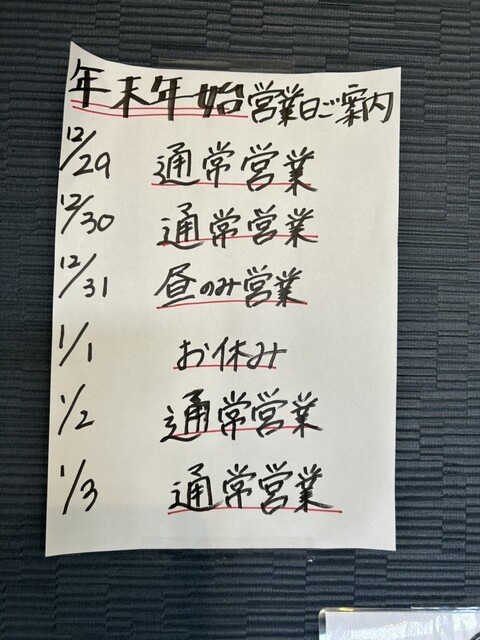 年末年始営業日ご案内
12/29 通常営業
12/30 通常営業
12/31 昼のみ営業
1/1 お休み
1/2 通常営業
1/3 通常営業